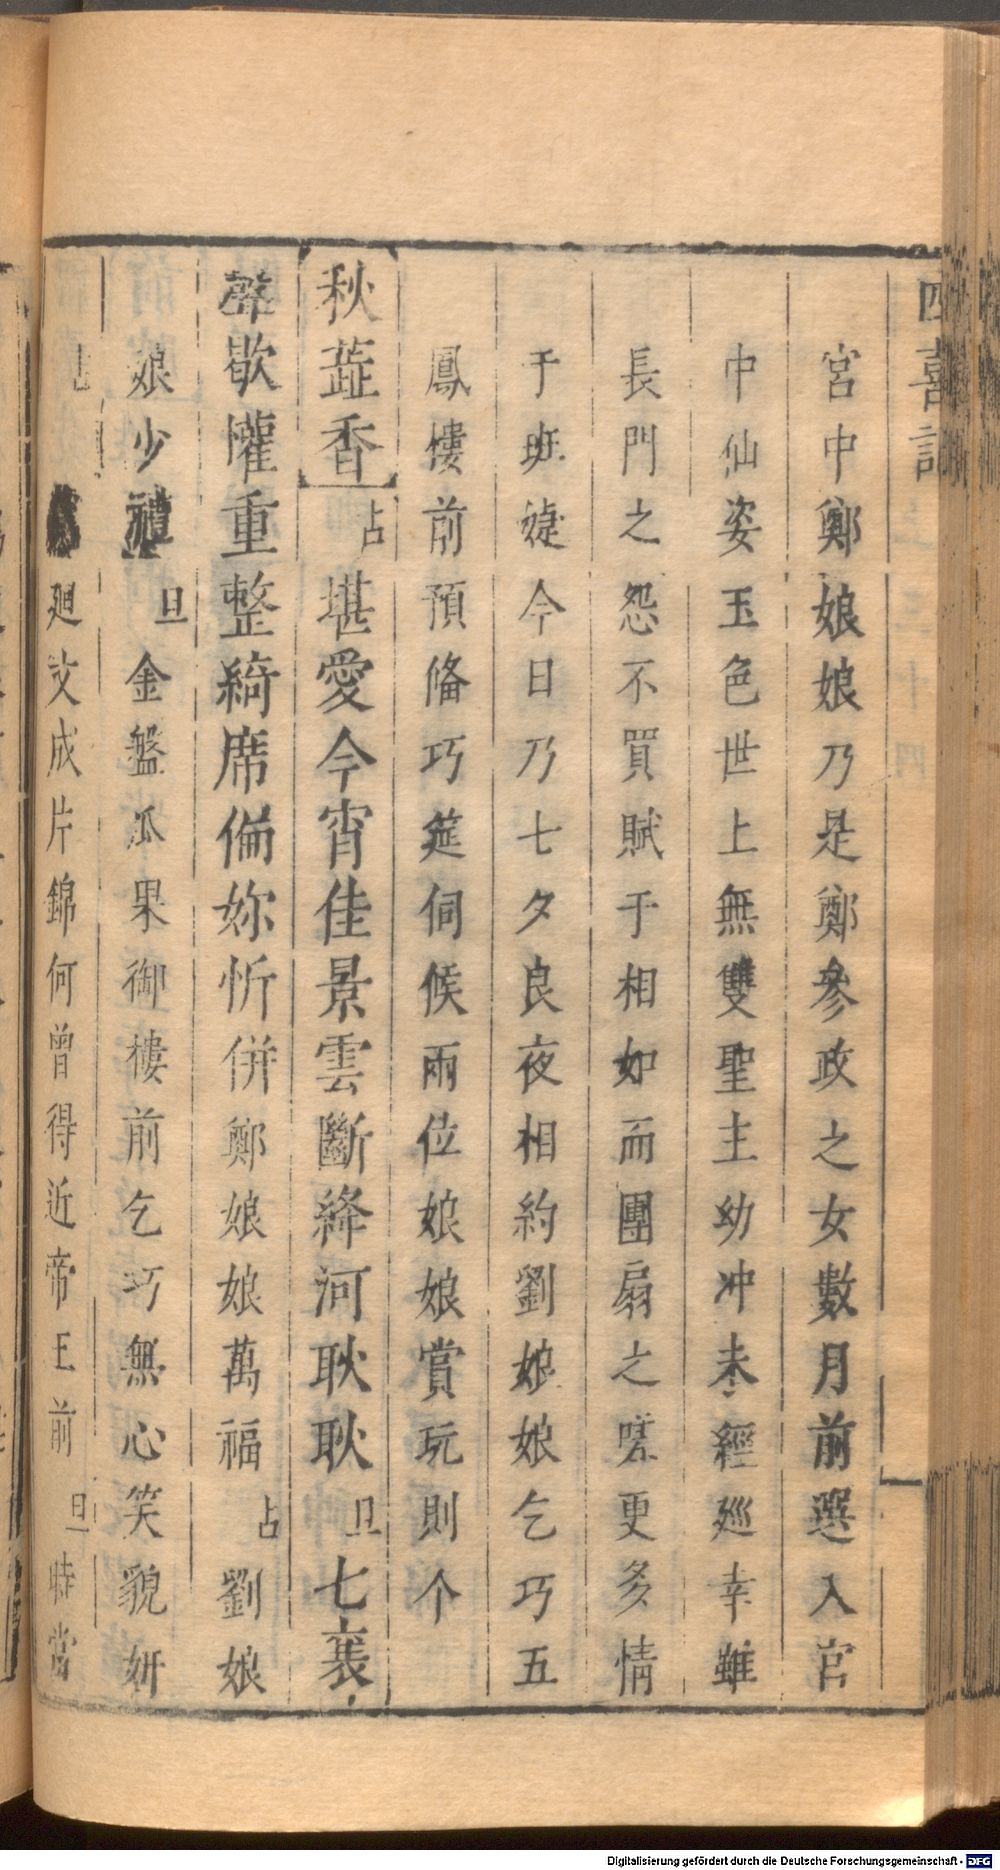 四喜記
宮中鄭娘娘乃是鄭參政之女數月前選入官
中仙姿玉色世上無雙聖主幼冲未經廵幸雖
長門之怨不買賦于相如而團扇之嗟更多情
于班婕今日乃七夕良夜相約劉娘娘乞巧五
鳳樓前預備巧筵伺候兩位娘娘賞玩則个
秋蕋香占堪愛今宵佳景雲斷絳河耿耿旦七襄
歇懽重整綺席備妳忻併鄭娘娘萬福占劉娘
娘少禮旦金盤瓜果御樓前乞巧無心笑貌妍
占廻文成片錦何曾得近帝王前旦時當
Digitalisierung gefördert durch die Deutsche Forschungsgemeinschaft - DFG